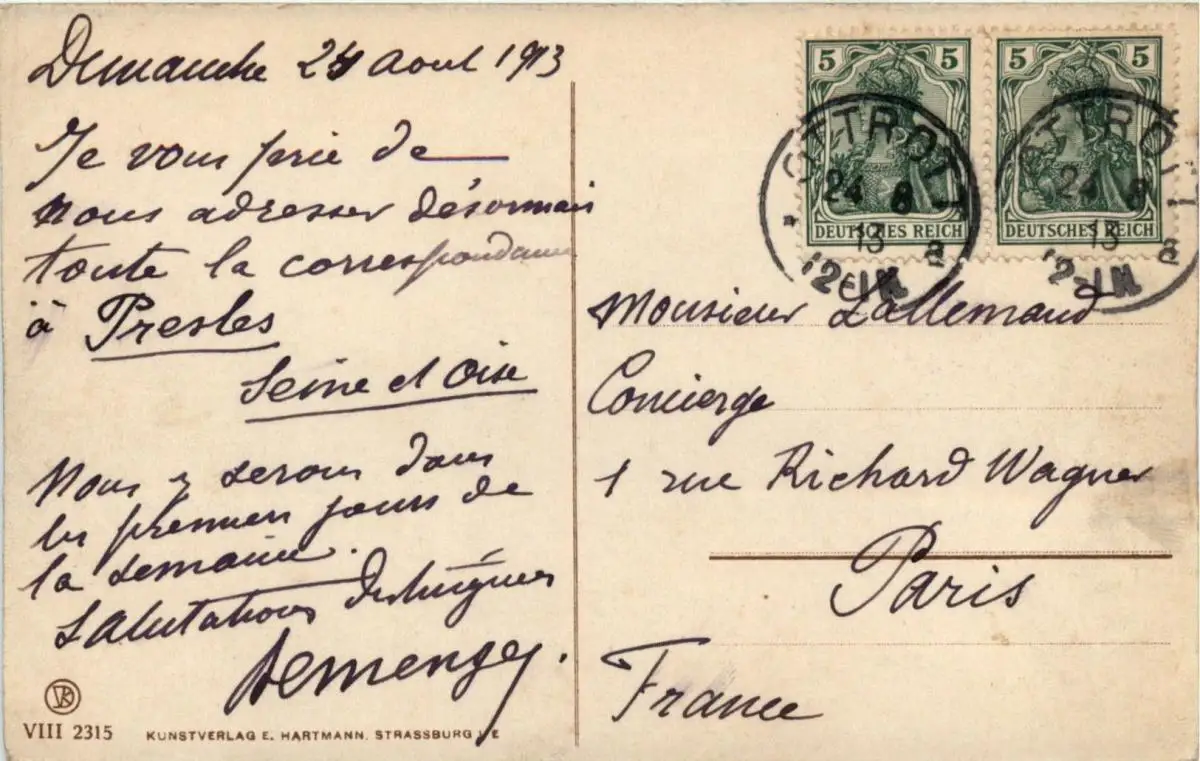 Demanche 24 Aout 1913
Je vous prie de
nous adresser désormais
toute la correspondance
à Presles
Seine et Oise
Nous y serons dans
les premiers jours de
la semaine.
Salutations distinguées
Demengey.
VIII 2315
KUNSTVERLAG E. HARTMANN. STRASSBURG I/E
5 5
DEUTSCHES REICH
5 5
DEUTSCHES REICH
OTTROTT
24 8
13
12-1N
a
OTTROTT
24 8
13
12-1N
a
Monsieur Lallemand
Concierge
1 rue Richard Wagner
Paris
France